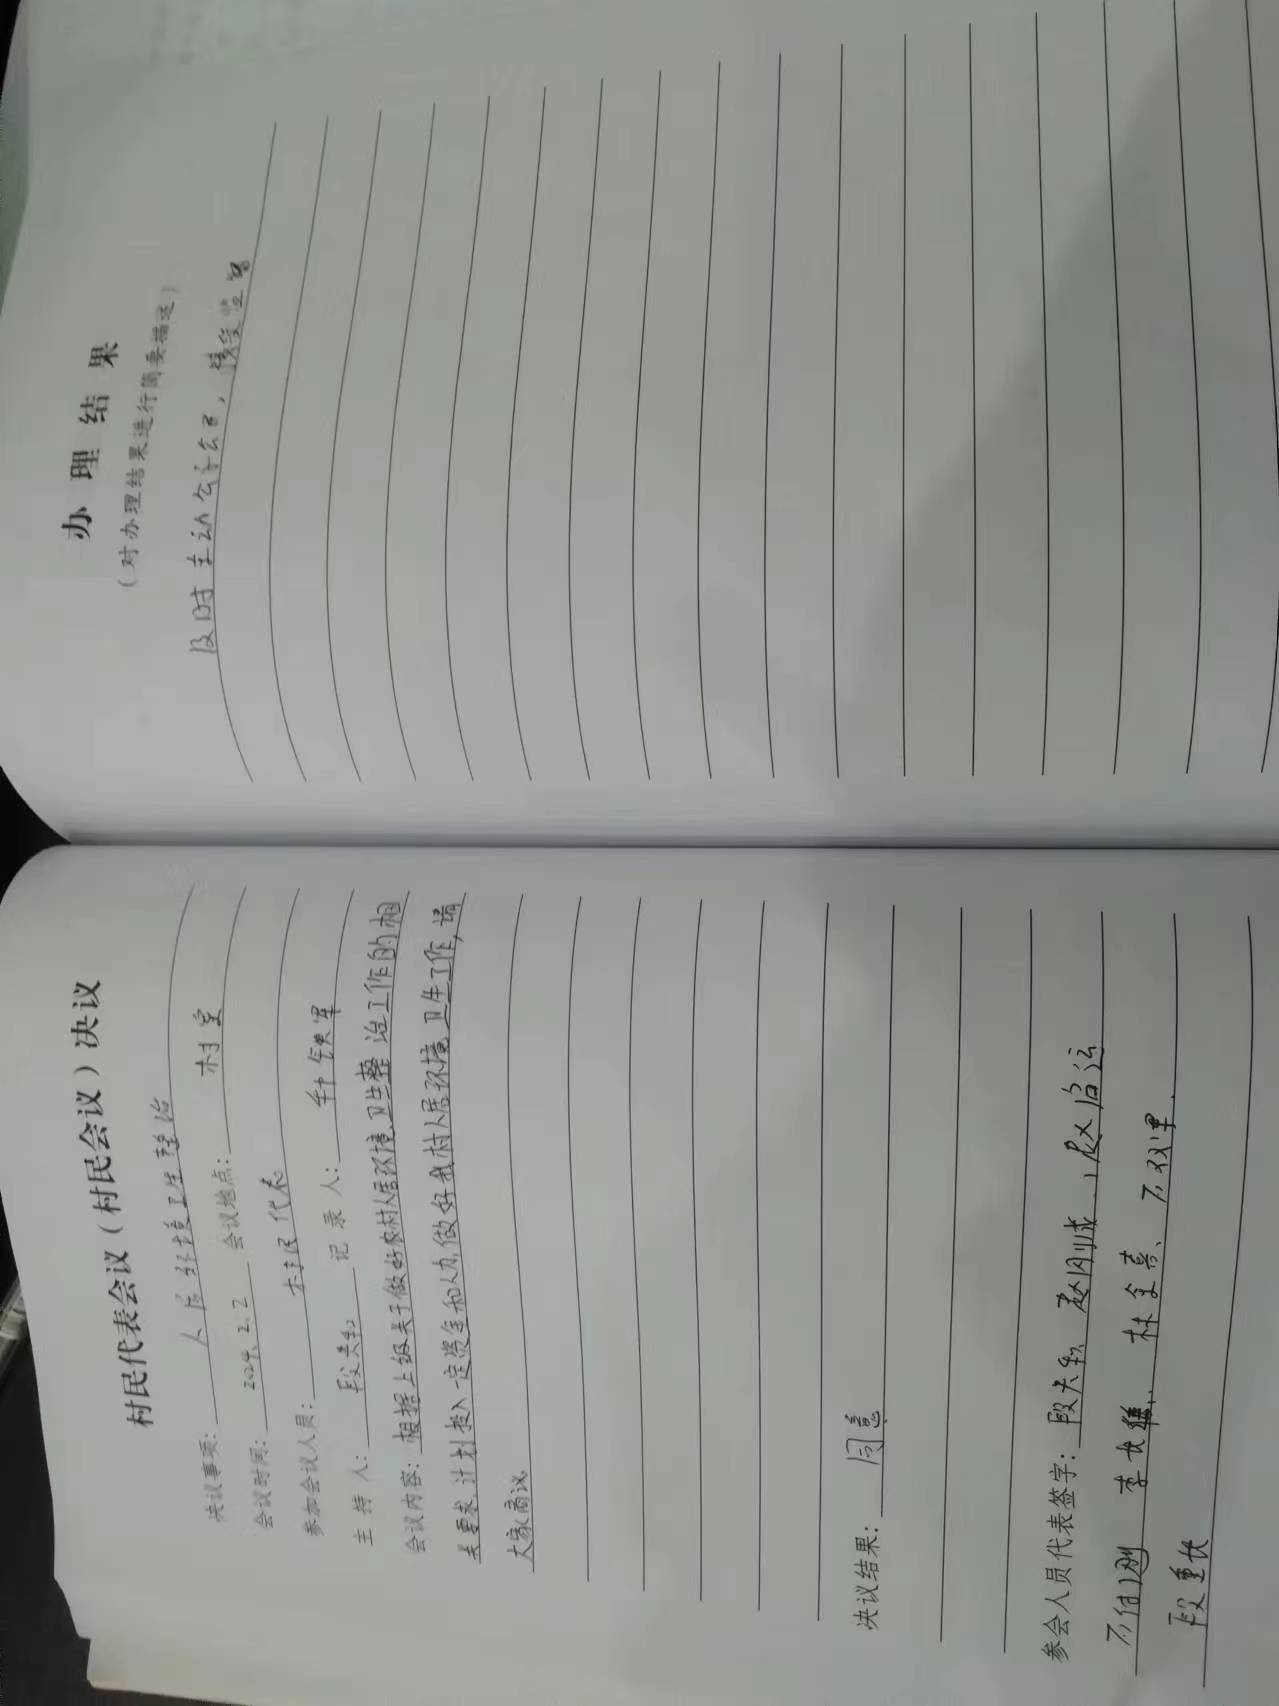 村民代表会议（村民会议）决议
决议事项： 人居环境卫生整治
会议时间： 2024.2.2 会议地点： 村室
参加会议人员： 村民代表
主 持 人： 段关钦 记 录 人：
会议内容： 根据上级关于做好农村人居环境卫生整治工作的相
关要求，计划投入一定资金和人力，做好我村人居环境卫生工作，请
大家商议
决议结果： 同意
参会人员代表签字： 段关钦
李长维、
段重伏
办理结果
（对办理结果进行简要描述）
及时主动公示公开，接受监督